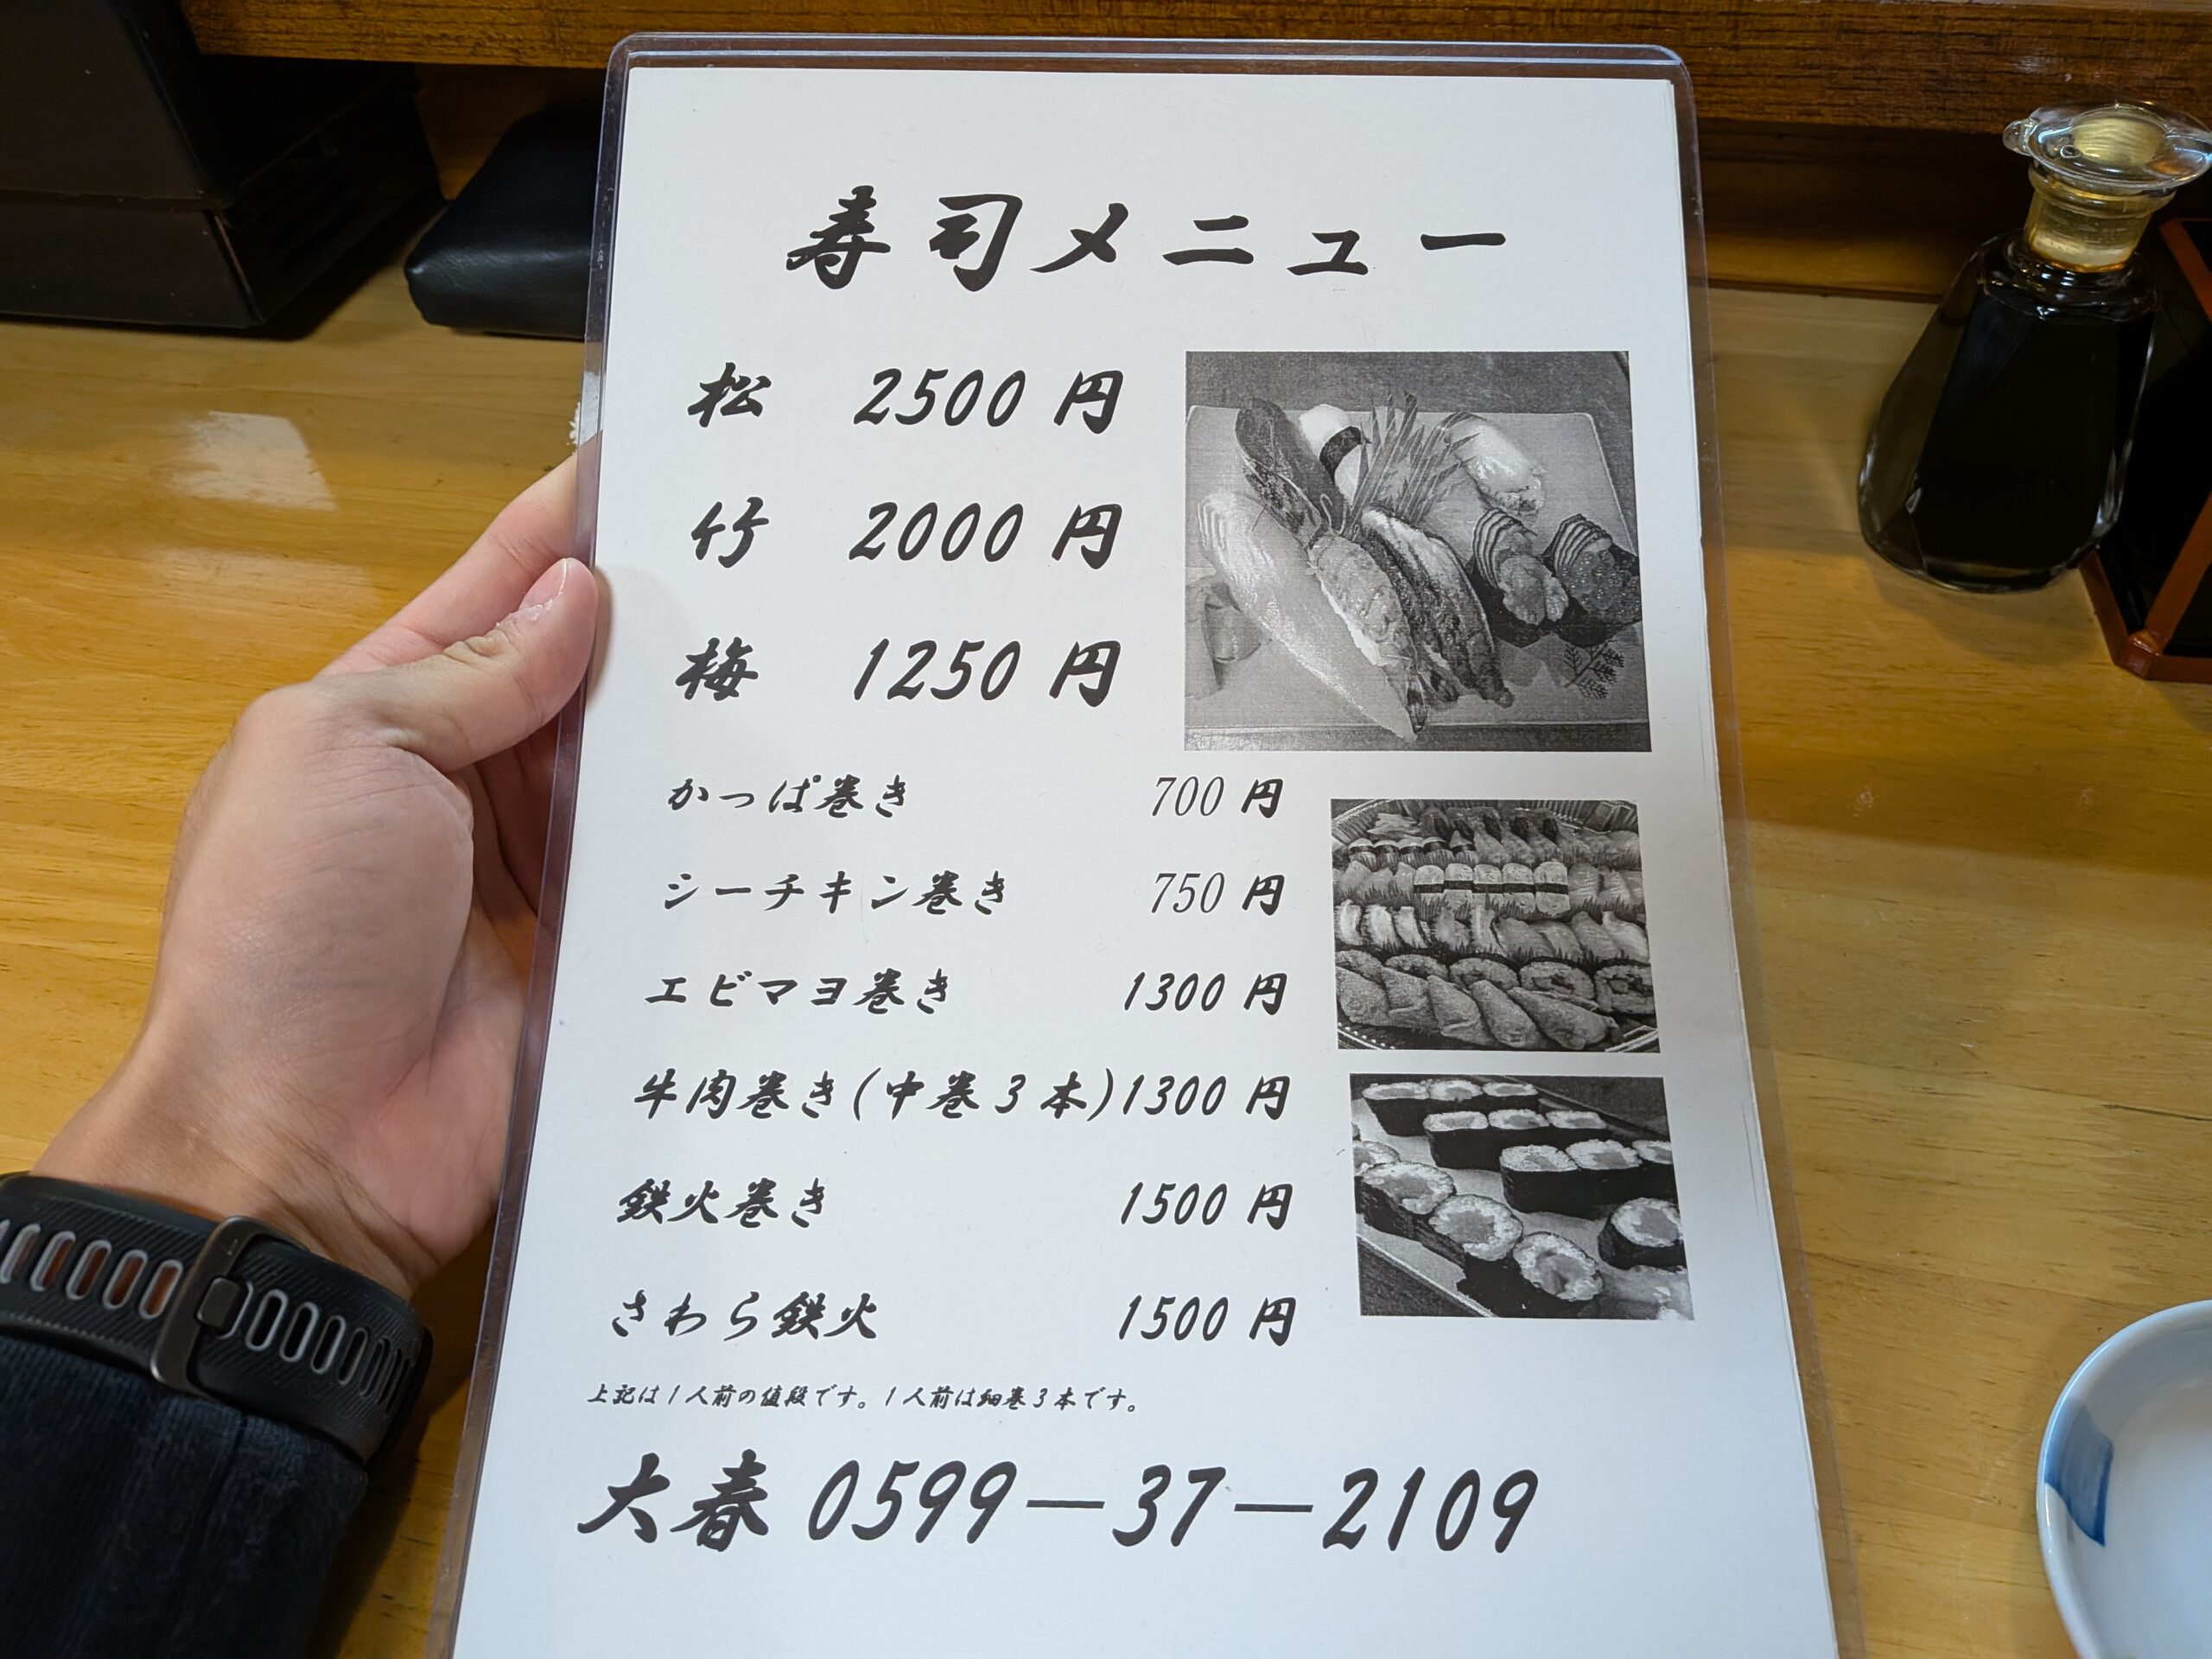 寿司メニュー
松 2500 円
竹 2000 円
梅 1250 円
かっぱ巻き 700 円
シーチキン巻き 750 円
エビマヨ巻き 1300 円
牛肉巻き(中巻3本)1300 円
鉄火巻き 1500 円
さわら鉄火 1500 円
上記は1人前の値段です。1人前は細巻3本です。
大春 0599―37―2109